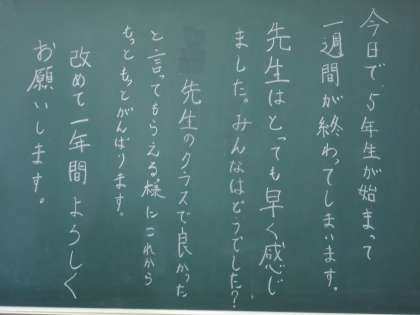 今日で、5年生が始まって
一週間が終わってしまいます。
先生はとっても早く感じ
ました。みんなはどうでした？
先生のクラスで良かった
と言ってもらえる様にこれから
もっともっとがんばります。
改めて一年間よろしく
お願いします。